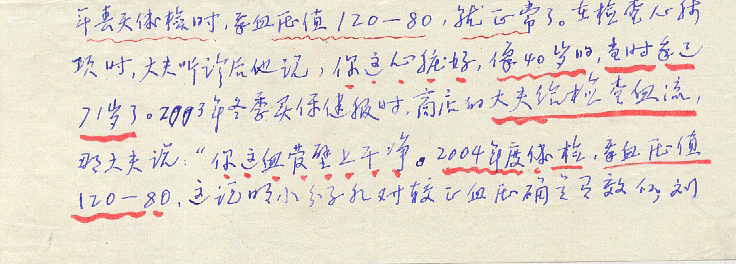 年春天体检时,我血压值120—80,就正常了。在检查心脏
项时,大夫听诊后他说,你这心脏好,像40岁的,当时我已
71岁了。2003年冬季买保健服时,商店的大夫给检查血流,
那大夫说:“你这血管壁上干净。2004年度体检,我血压值
120—80,这说明小分子水对较正血压确实有效的,刘